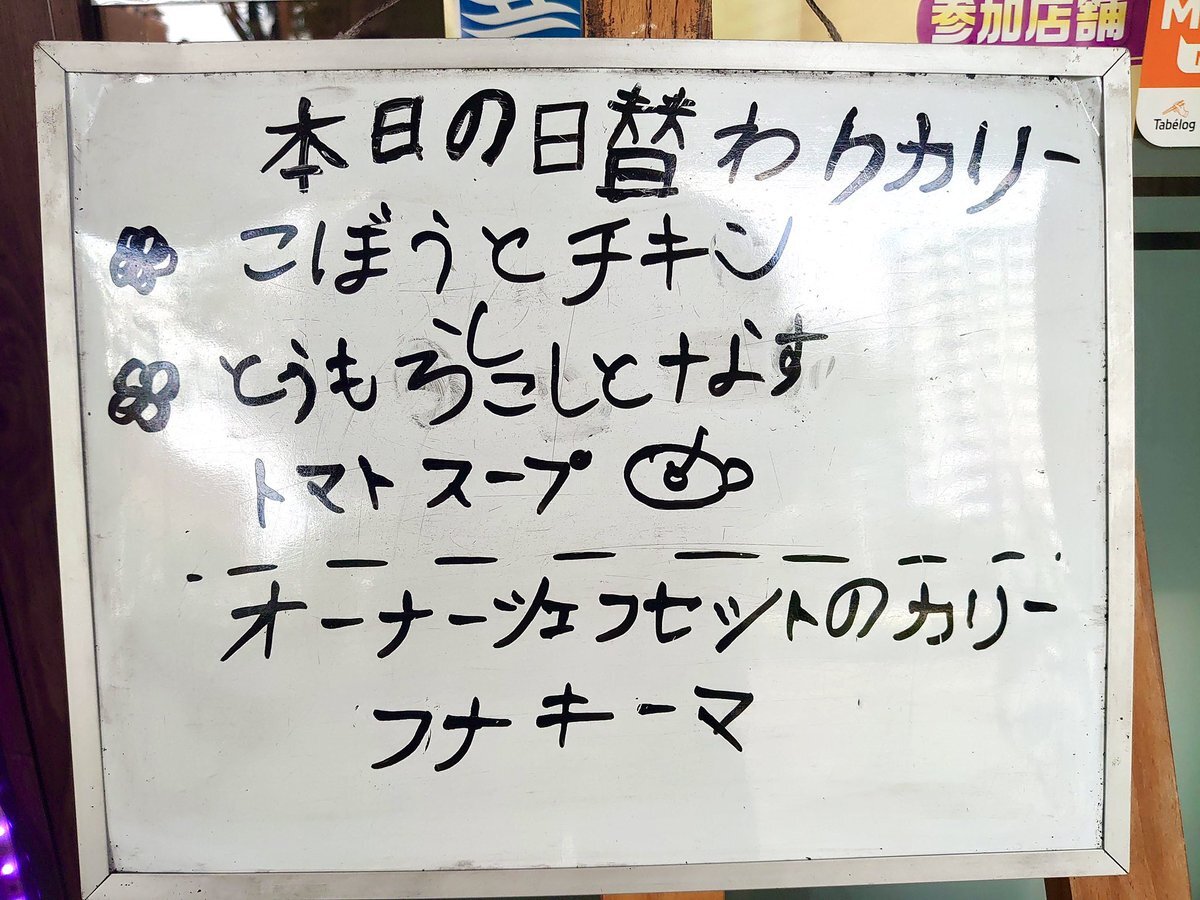 参加店舗
Tabélog
本日の日替わりカリー
こぼうとチキン
とうもろしこしとなす
トマトスープ
オーナーシェフセットのカリー
フナキーマ